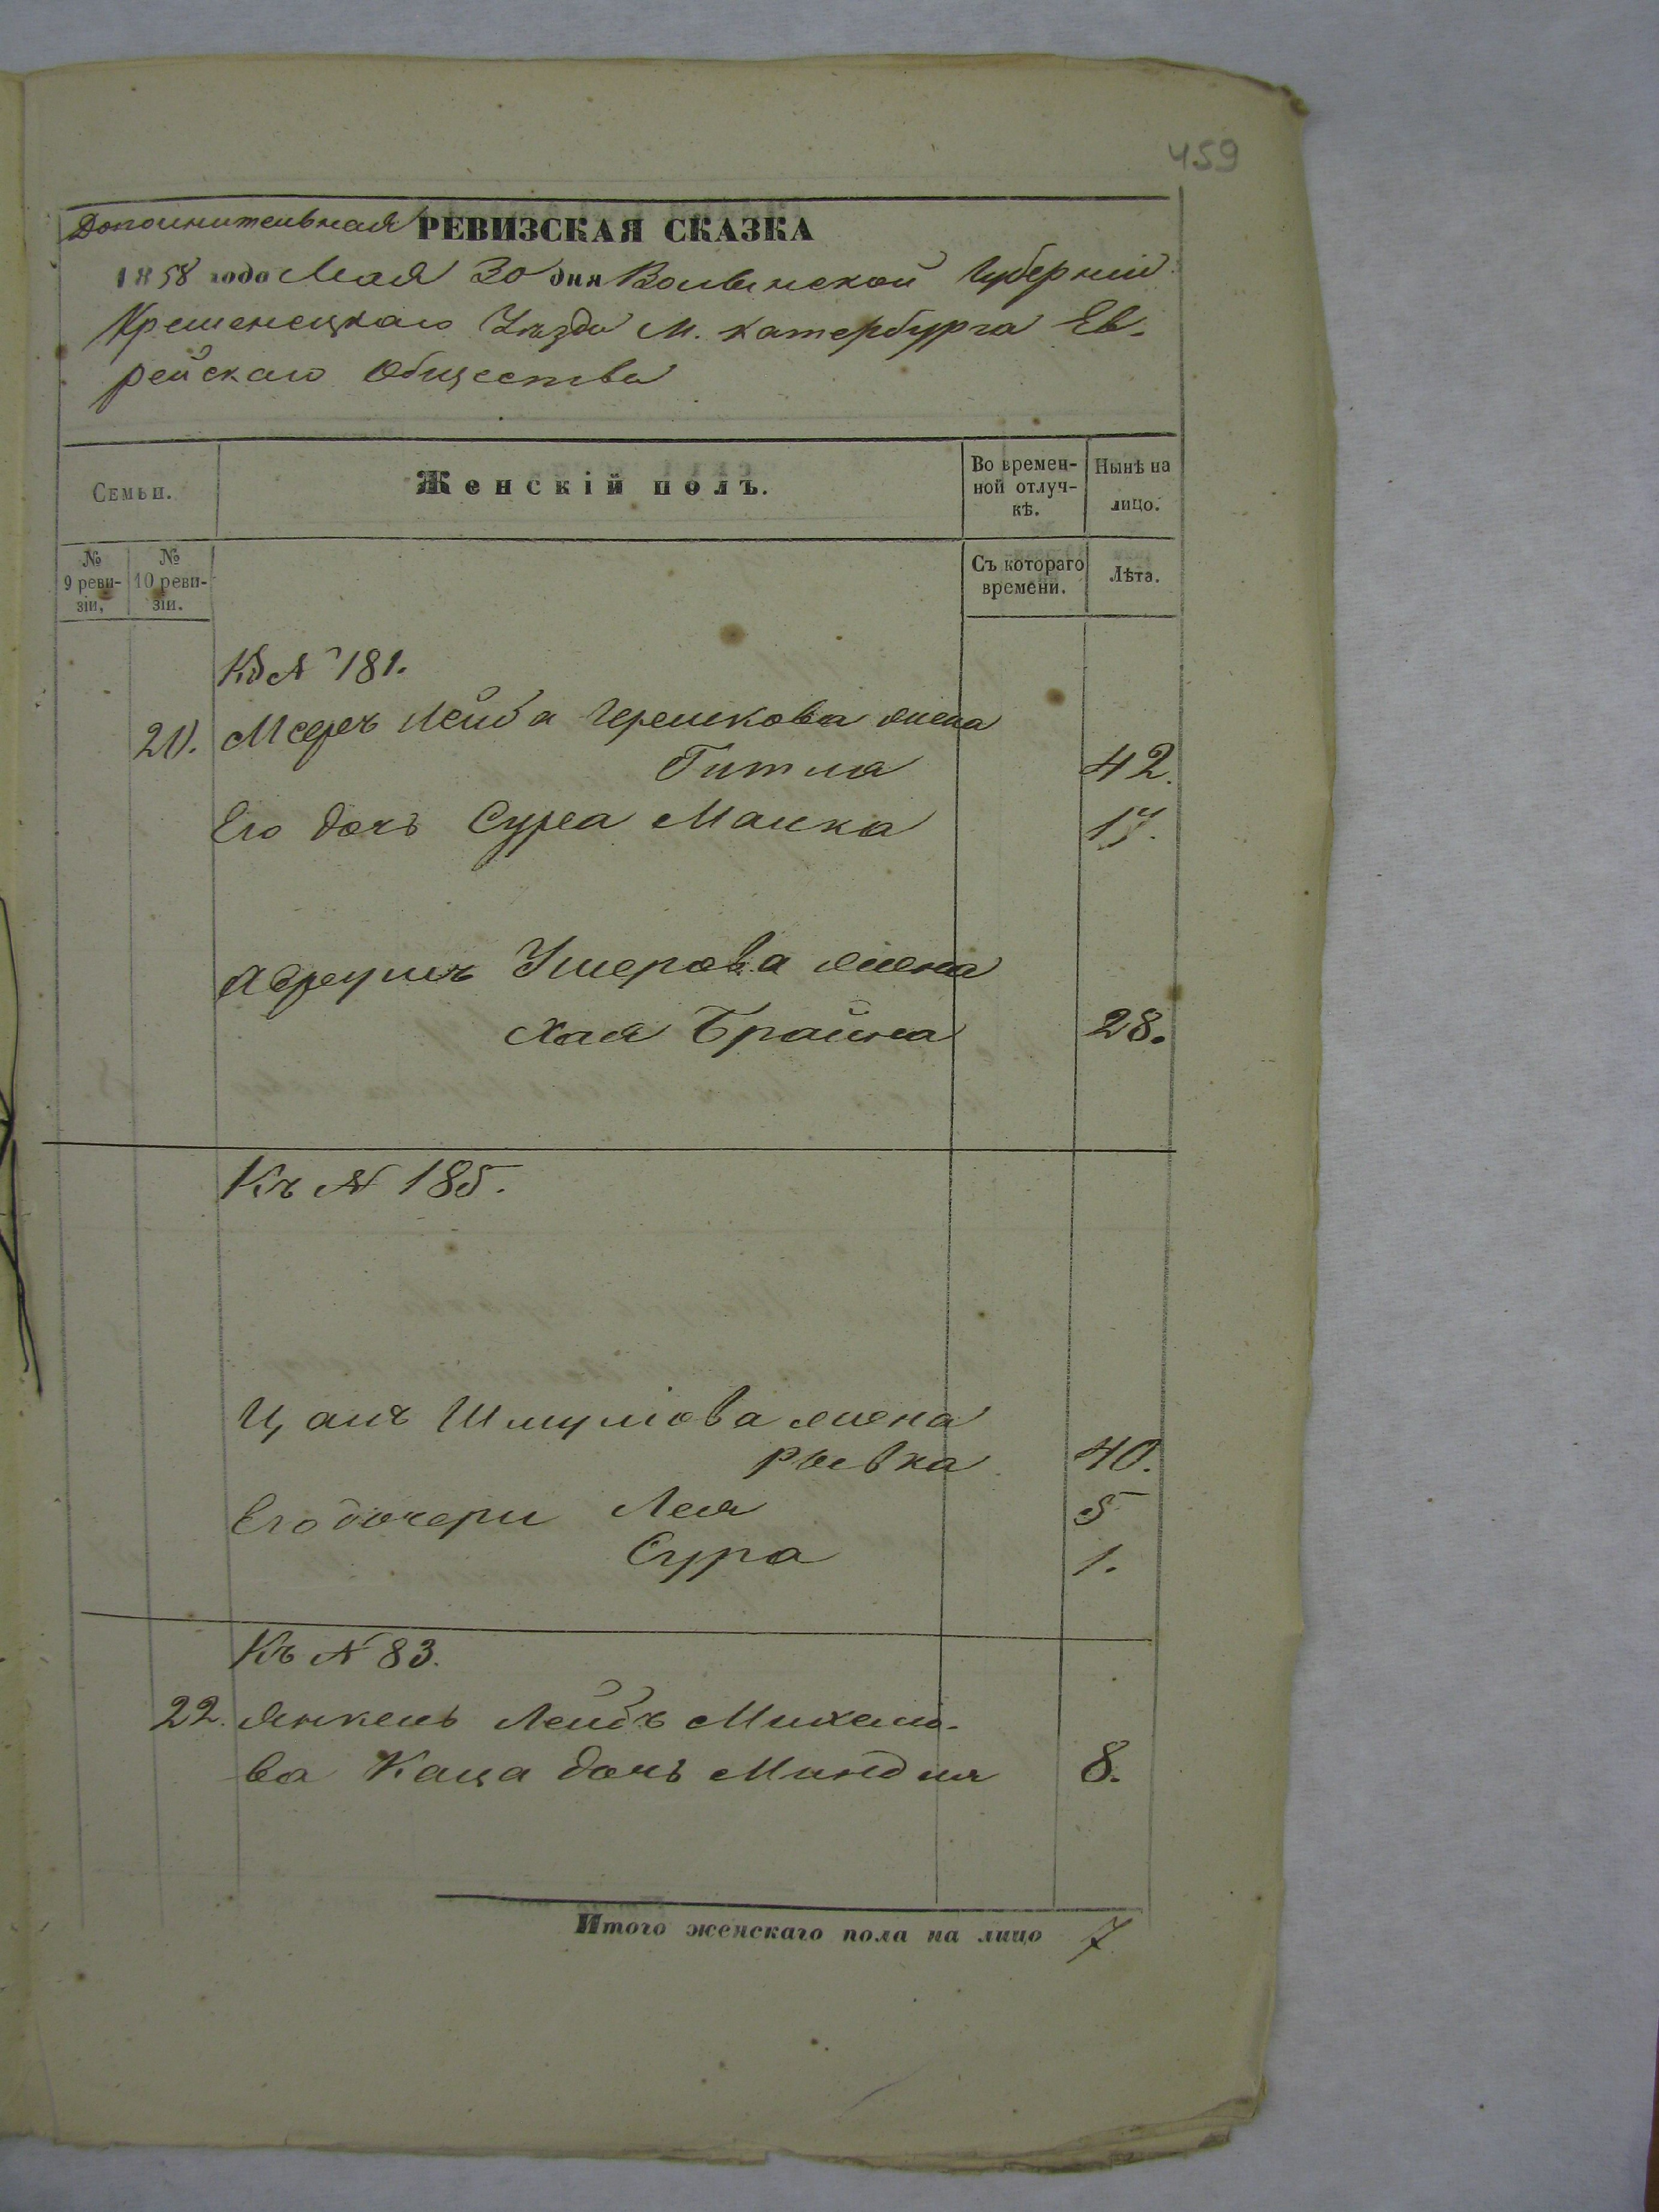 459
Дополнительная РЕВИЗСКАЯ СКАЗКА
1858 года Мая 30 дня Волынской Губерніи
Кременецкаго Уѣзда М. Катербурга Ев-
рейскаго Общества
Семьи.
Женскій полъ.
Во времен-
ной отлуч-
кѣ.
Нынѣ на
лицо.
№
9 реви-
зіи,
№
10 реви-
зіи.
Съ котораго
времени.
Лѣта.
Къ № 181.
21. Лейба Гершкова жена
Гитла 42.
Его дочь Сура Малка
Абрумъ Ушерова жена
Хая Брайна 28.
Къ № 185.
Цаль Шмулiова жена
Рывка 40.
Его дочери Лея 5
Сура 1.
Къ № 83.
22. Янкель Лейбъ Михелiо-
ва Каца дочь Миндля 8.
Итого женскаго пола на лицо 7